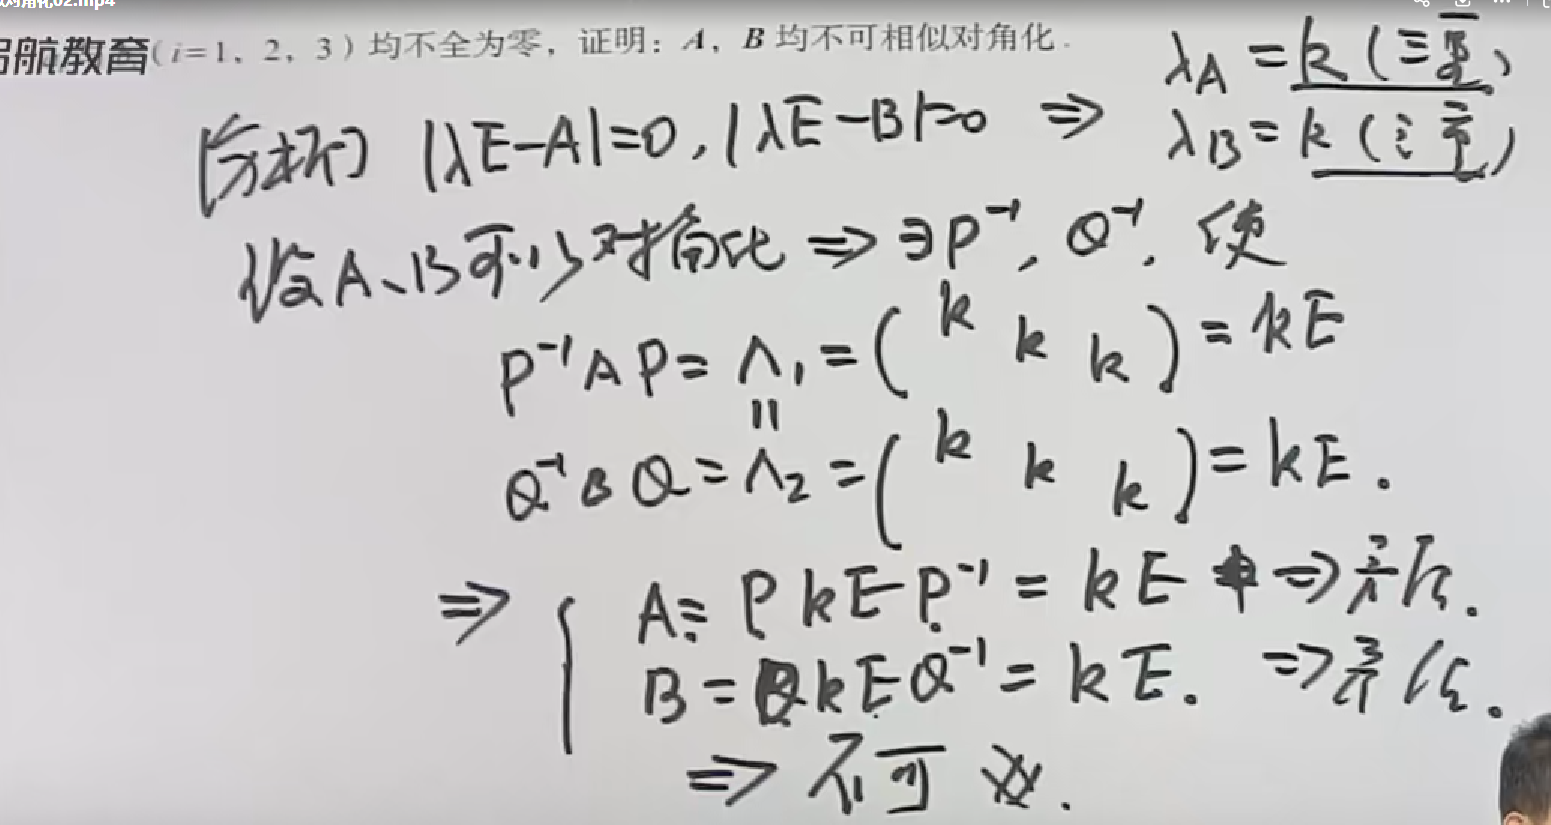 对角化02.mp4
启航教育(i=1, 2, 3)均不全为零, 证明: A, B 均不可相似对角化.
λA = k (三重)
[分析] |λE-A|=0, |λE-B|=0 ⇒ λB = k (三重)
设A、B可以对角化 ⇒ ∃P⁻¹, Q⁻¹, 使
P⁻¹AP = Λ₁ = ( k k k ) = kE
||
Q⁻¹BQ = Λ₂ = ( k k k ) = kE.
⇒ { A = P kE P⁻¹ = kE ⇒ 矛盾.
B = QkEQ⁻¹ = kE. ⇒ 矛盾.
⇒ 不可对.